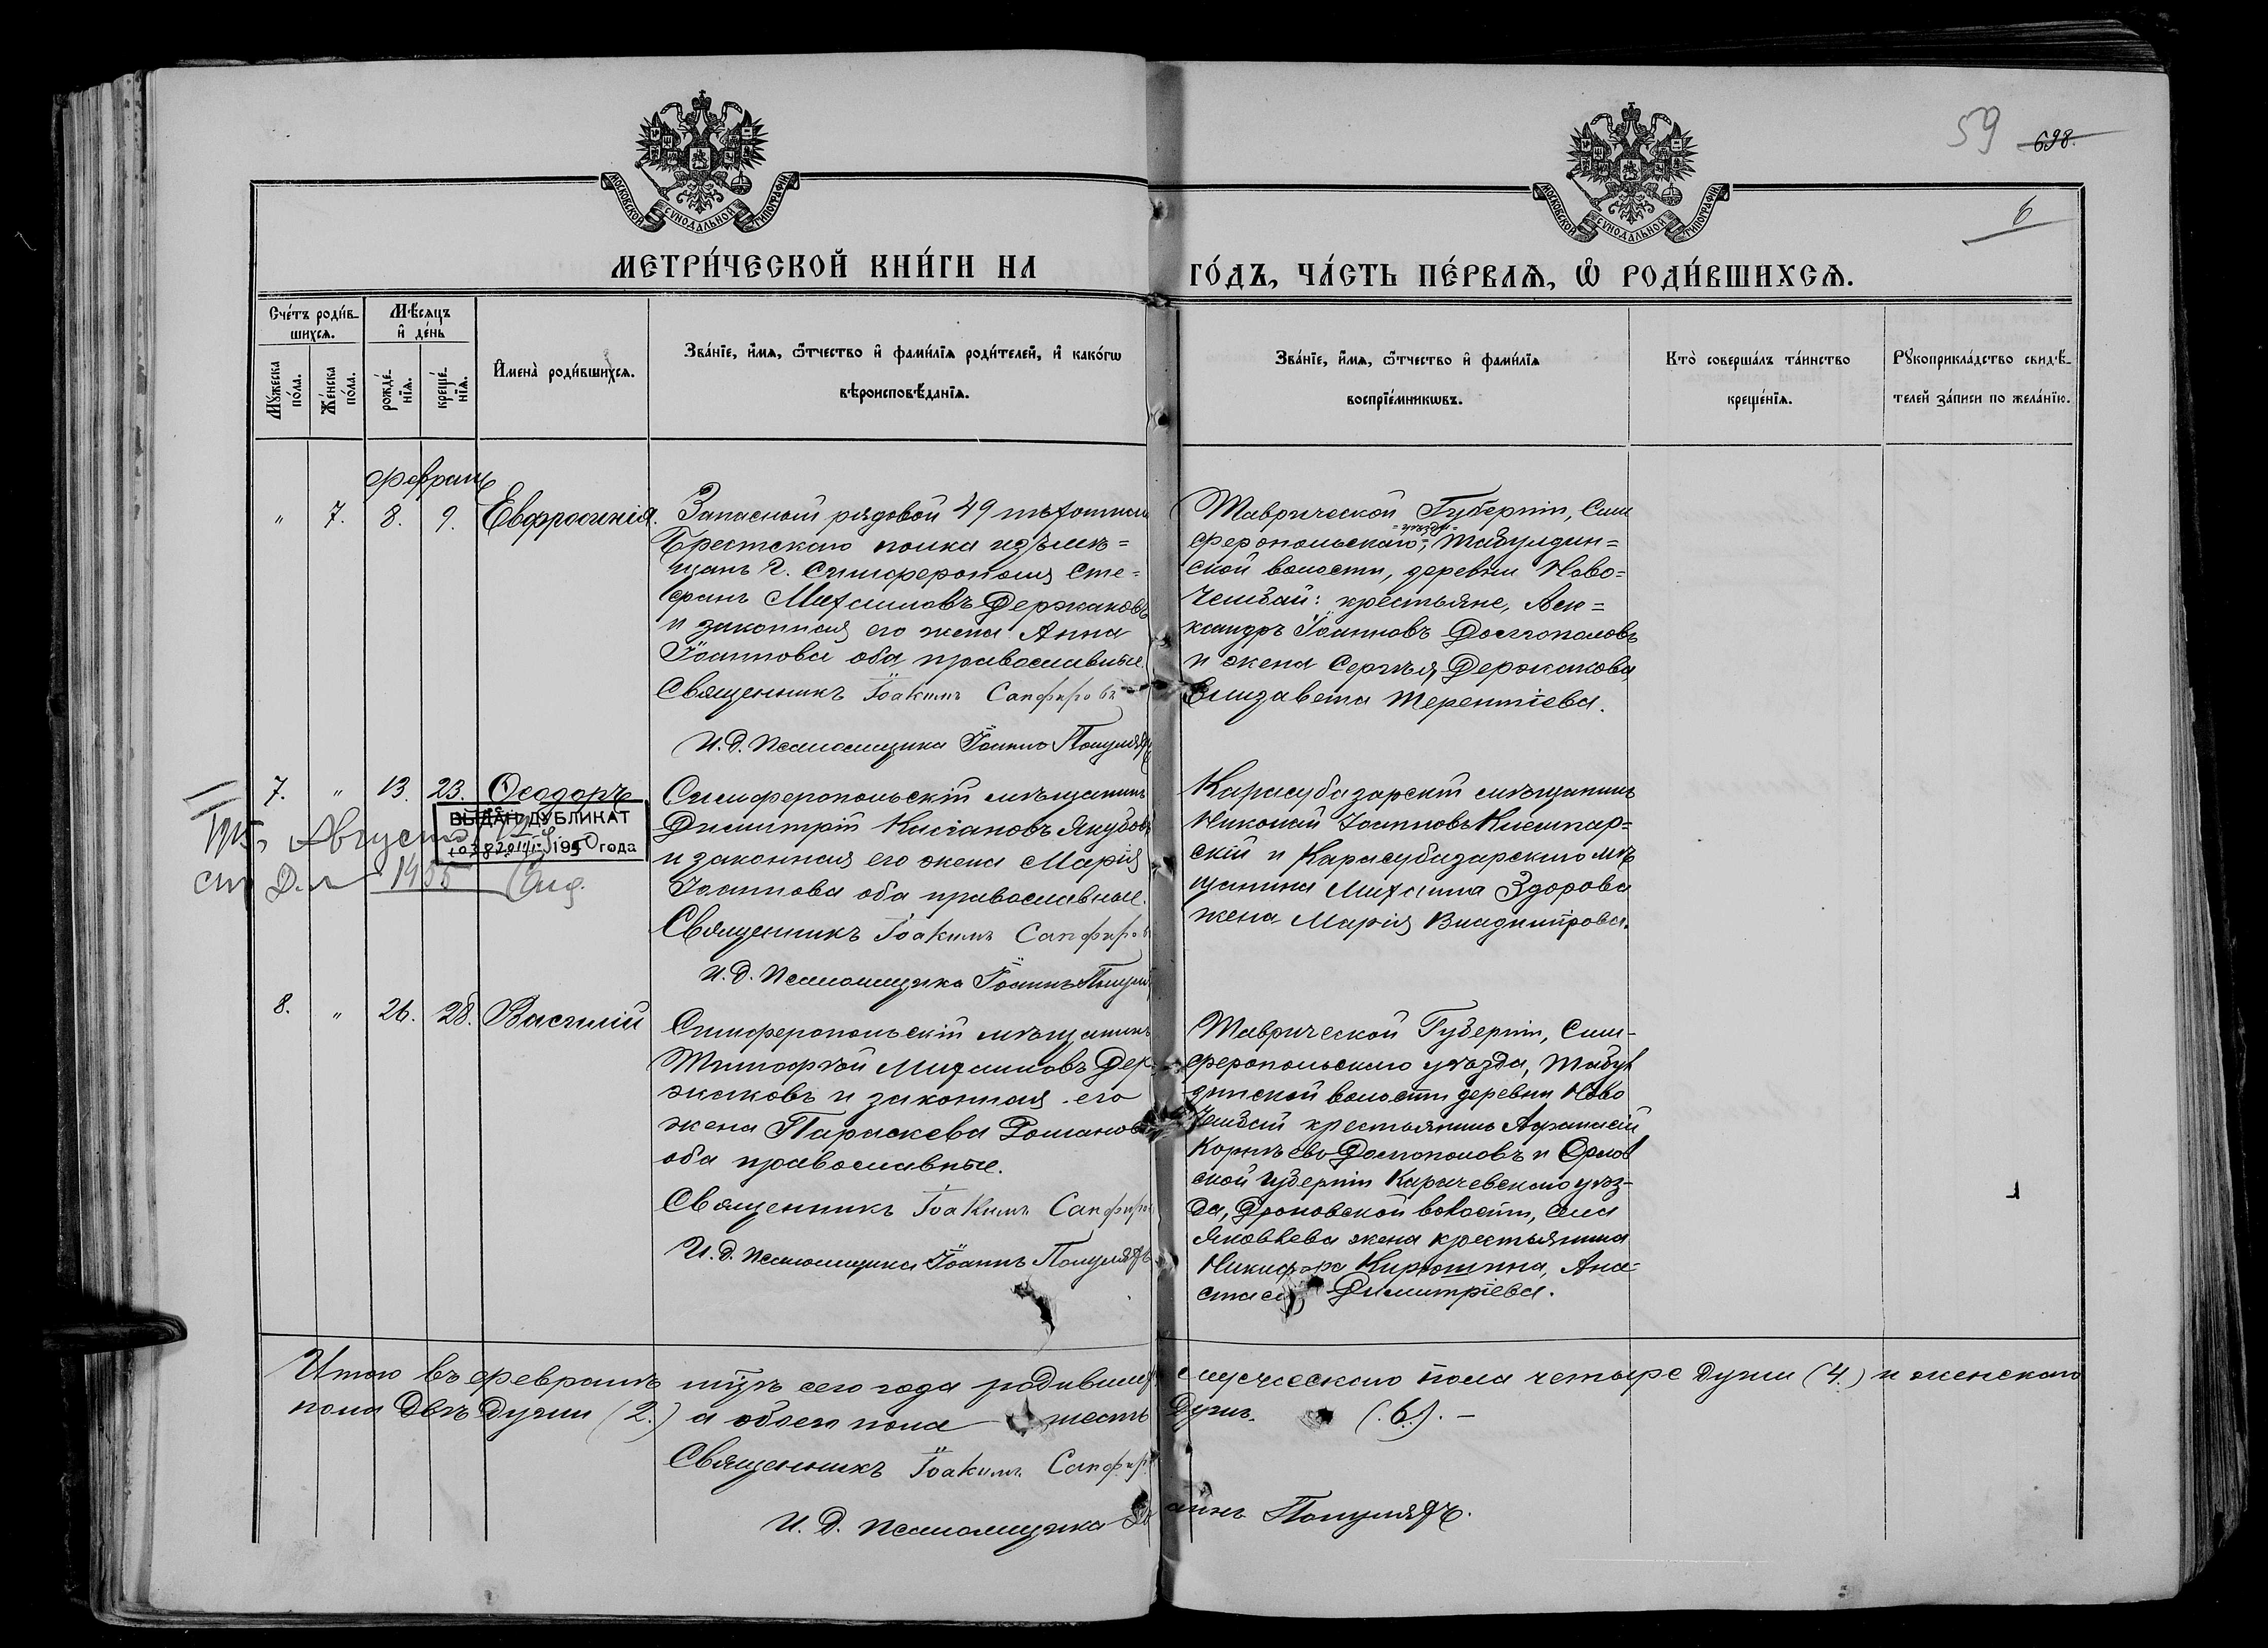 59 698.
6
МОСКОВСКОЙ СѴНОДАЛЬНОЙ ТИПОГРАФІИ
МОСКОВСКОЙ СѴНОДАЛЬНОЙ ТИПОГРАФІИ
МЕТРИ́ЧЕСКОЙ КНИ́ГИ НА ГО́ДЪ, ЧА́СТЬ ПЕ́РВАЯ, Ѡ҆ РОДИ́ВШИХСЯ.
Сче́тъ роди́в-
шихся.
Му́жеска по́ла.
Же́нска по́ла.
Мѣ́сяцъ
и҆ де́нь
рожде́-
нія.
креще́-
нія.
И҆мена̀ роди́вшихся.
Зва́нїе, и҆́мя, ѻ҆́тчество и҆ фами́лїя роди́телей, и҆ како́гѡ
вѣроисповѣ́данїя.
Зва́нїе, и҆́мя, ѻ҆́тчество и҆ фами́лїя
воспрїе́мникѡвъ.
Кто̀ соверша́лъ та́инство
креще́нїя.
Рукоприкла́дство свидѣ́-
телей за́писи по жела́нїю.
февраль
" 7. 8. 9. Евфросинія.
Запасный рядовой 49 пѣхотнаго
Брестскаго полка изъ мѣ=
щанъ г. Симферополя Сте=
фанъ Михаиловъ Держаковъ
и законная его жена Анна
Іоаннова оба православные.
Священникъ Іоакимъ Сапфировъ
И. д. псаломщика Іоаннъ
Таврической Губерніи, Сим
=уѣзда=
феропольскаго, Табулдин=
ской волости, деревни Ново=
Челбай: крестьяне, Але=
ксандръ Іоанновъ Долгополовъ
и жена Сергѣя Держакова
Елизавета Терентіева.
7. " 13. 23. Ѳеодоръ
Симферопольскій мѣщанинъ
Димитрій Якубовъ
и законная его жена Марія
Іоаннова оба православные.
Священникъ Іоакимъ Сапфиров
И. д. псаломщика Іоаннъ
Карасубазарскій мѣщанинъ
Николай Іоанновъ
скій и Карасубазарскаго мѣ
щанина Михаила Здорова
жена Марія Владимірова.
ВЫДАН ДУБЛИКАТ
195 года
Август
1955
8. " 26. 28. Василій
Симферопольскій мѣщанинъ
Тимофей Михаиловъ Дер-
жаковъ и законная его
жена Параскева Романова
оба православные.
Священникъ Іоакимъ Сапфиров
И. д. псаломщика Іоаннъ
Таврической Губерніи, Сим-
феропольскаго уѣзда, Табул
динской волости деревни Ново
Челбай крестьянинъ Афанасій
Корнѣевъ Долгополовъ и Орлов
ской губерніи Карачевскаго уѣз-
да, Дроновской волости, села
Яковлева жена крестьянина
Никифора Кирюшина, Ана=
стасія Димитріева.
Итого въ февралѣ мцѣ сего года родившихся мужескаго пола четыре души (4.) и женскаго
пола двѣ души (2.) а обоего пола шесть душъ. (.6.). –
Священникъ Іоакимъ Сапфиров
И. д. псаломщика Іоаннъ